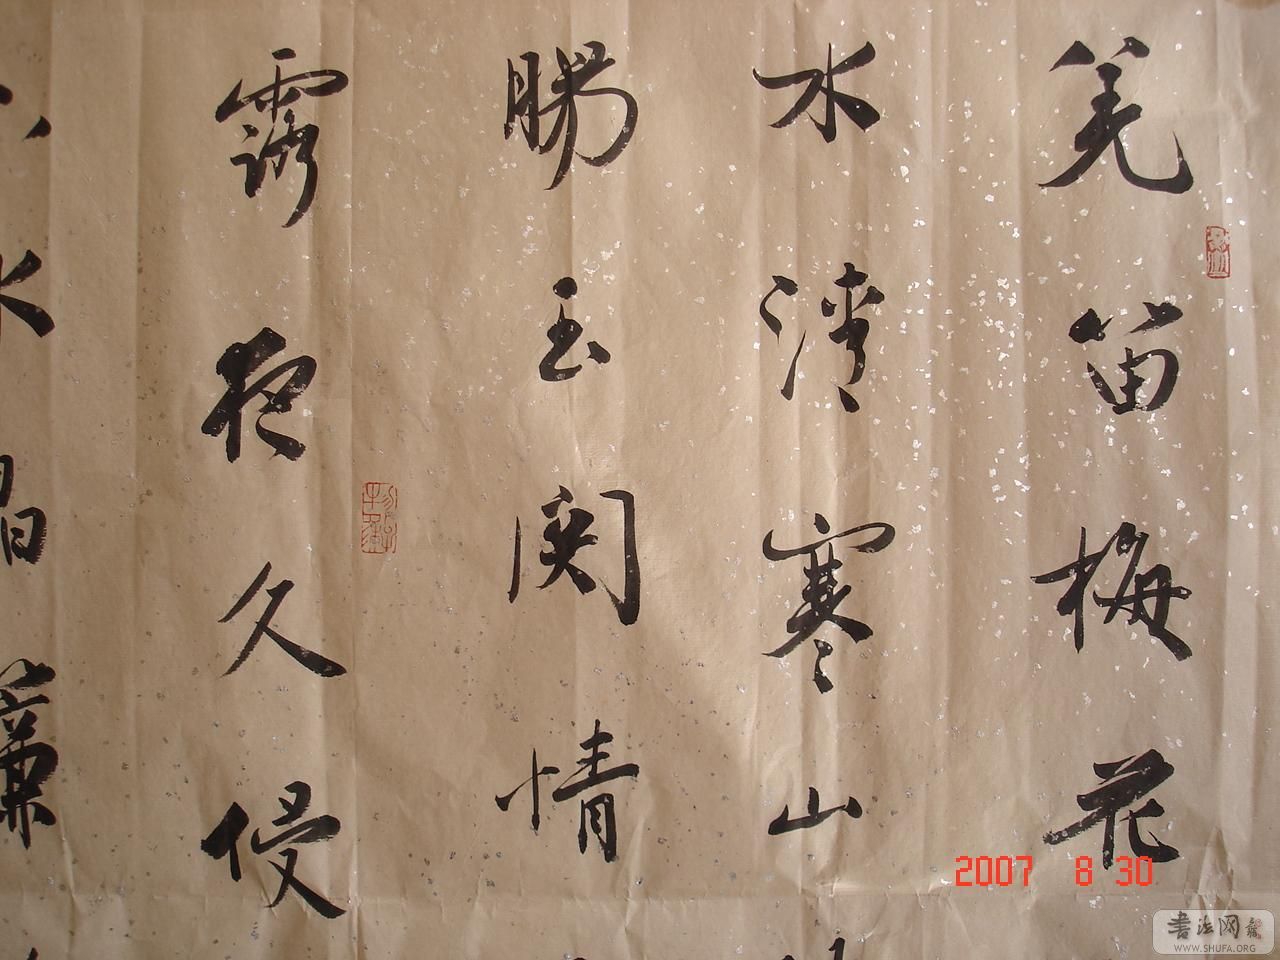 羌笛梅花
水湾寒山
腸玉関情
露夜久侵
水晶簾
2007 8 30
書法网
WWW.SHUFA.ORG